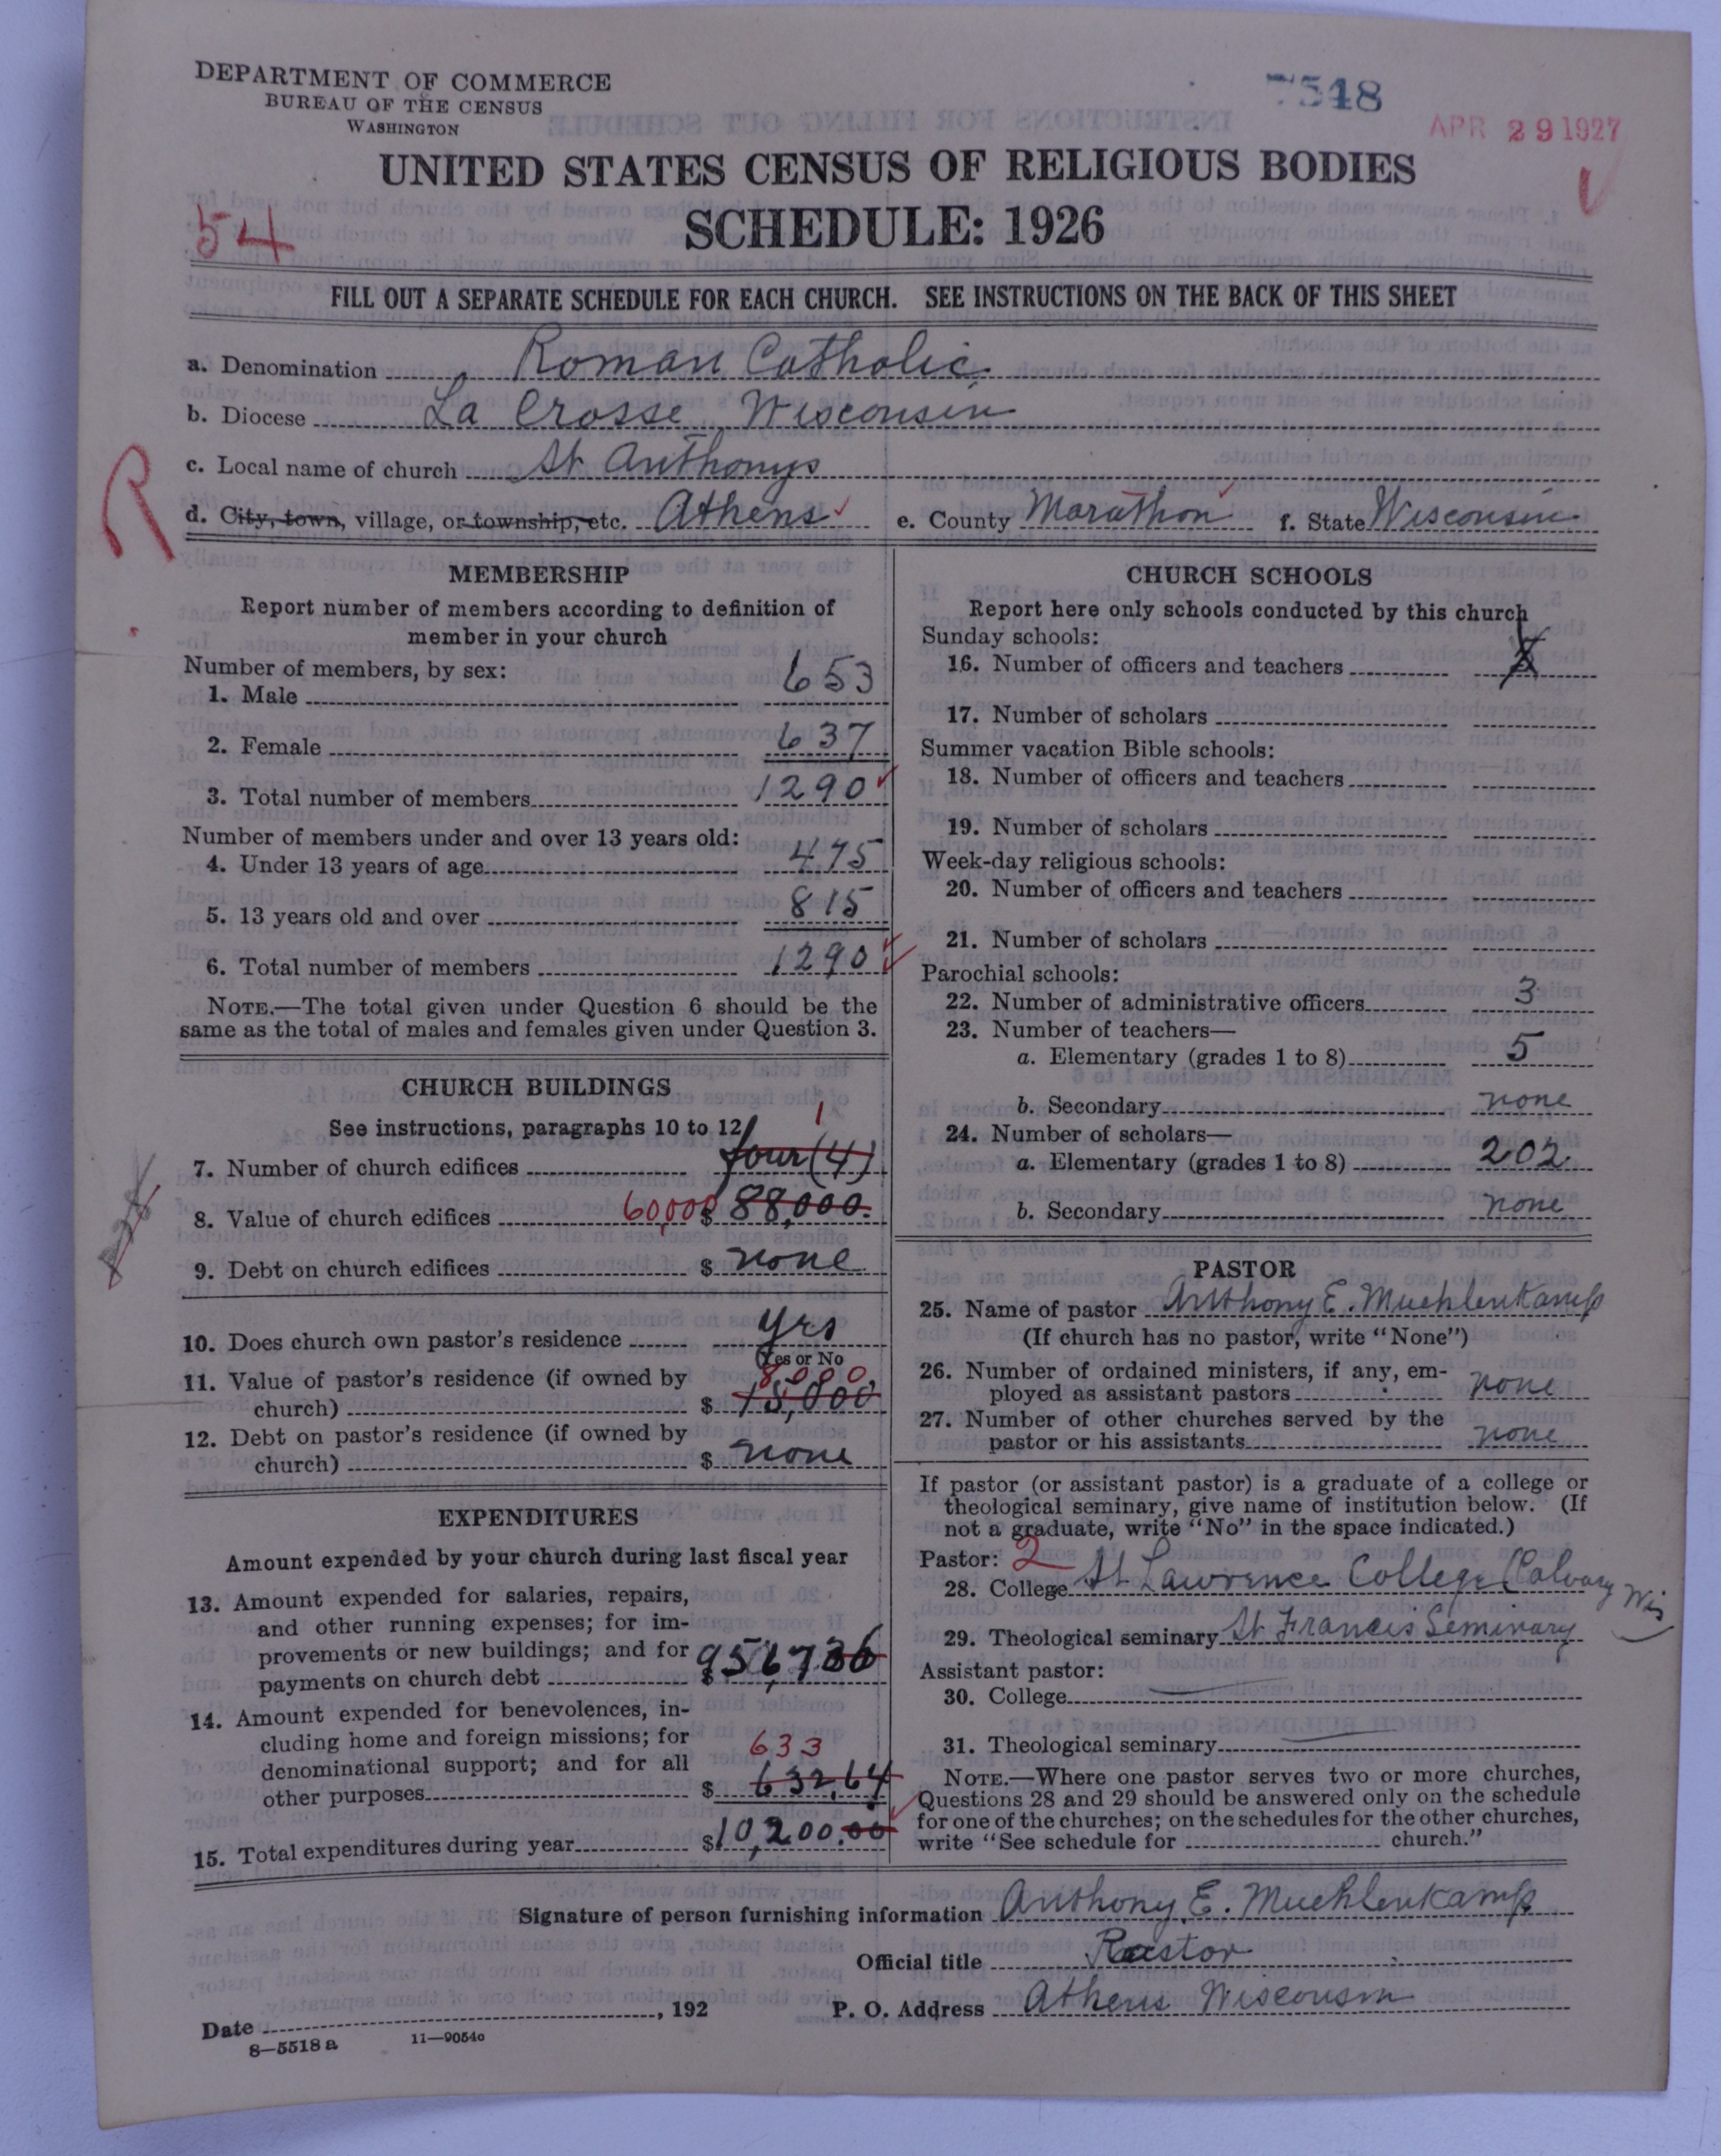 DEPARTMENT OF COMMERCE
BUREAU OF THE CENSUS
WASHINGTON
7548
APR 29 1927
UNITED STATES CENSUS OF RELIGIOUS BODIES
SCHEDULE: 1926
54
FILL OUT A SEPARATE SCHEDULE FOR EACH CHURCH. SEE INSTRUCTIONS ON THE BACK OF THIS SHEET
a. Denomination Roman Catholic
b. Diocese La Crosse Wisconsin
c. Local name of church St Anthonys
R
d. City, town, village, or township, etc. Athens e. County Marathon f. State Wisconsin
MEMBERSHIP
Report number of members according to definition of
member in your church
Number of members, by sex:
1. Male 653
2. Female 637
3. Total number of members 1290
Number of members under and over 13 years old:
4. Under 13 years of age 475
5. 13 years old and over 815
6. Total number of members 1290
NOTE.—The total given under Question 6 should be the
same as the total of males and females given under Question 3.
CHURCH BUILDINGS
See instructions, paragraphs 10 to 12
1
7. Number of church edifices four (4)
8. Value of church edifices 60,000 $ 88,000.
9. Debt on church edifices $ none
10. Does church own pastor's residence yes
Yes or No
8000
11. Value of pastor's residence (if owned by
church) $ 15,000
12. Debt on pastor's residence (if owned by
church) $ none
EXPENDITURES
Amount expended by your church during last fiscal year
13. Amount expended for salaries, repairs,
and other running expenses; for im-
provements or new buildings; and for
payments on church debt $ 9567
14. Amount expended for benevolences, in-
cluding home and foreign missions; for
633
denominational support; and for all
other purposes $ 632.64
15. Total expenditures during year $10,200.00
CHURCH SCHOOLS
Report here only schools conducted by this church
Sunday schools:
16. Number of officers and teachers
17. Number of scholars
Summer vacation Bible schools:
18. Number of officers and teachers
19. Number of scholars
Week-day religious schools:
20. Number of officers and teachers
21. Number of scholars
Parochial schools:
22. Number of administrative officers 3
23. Number of teachers—
a. Elementary (grades 1 to 8) 5
b. Secondary none
24. Number of scholars—
a. Elementary (grades 1 to 8) 202
b. Secondary none
PASTOR
25. Name of pastor Anthony E. Muehlenkamp
(If church has no pastor, write "None")
26. Number of ordained ministers, if any, em-
ployed as assistant pastors none
27. Number of other churches served by the
pastor or his assistants none
If pastor (or assistant pastor) is a graduate of a college or
theological seminary, give name of institution below. (If
not a graduate, write "No" in the space indicated.)
Pastor: 2
28. College St Lawrence College (Calvary Wis)
29. Theological seminary St Francis Seminary
Assistant pastor:
30. College
31. Theological seminary
NOTE.—Where one pastor serves two or more churches,
Questions 28 and 29 should be answered only on the schedule
for one of the churches; on the schedules for the other churches,
write "See schedule for church."
Signature of person furnishing information Anthony E. Muehlenkamp
Official title Pastor
Date , 192 P. O. Address Athens Wisconsin
8—5518 a 11—9054c